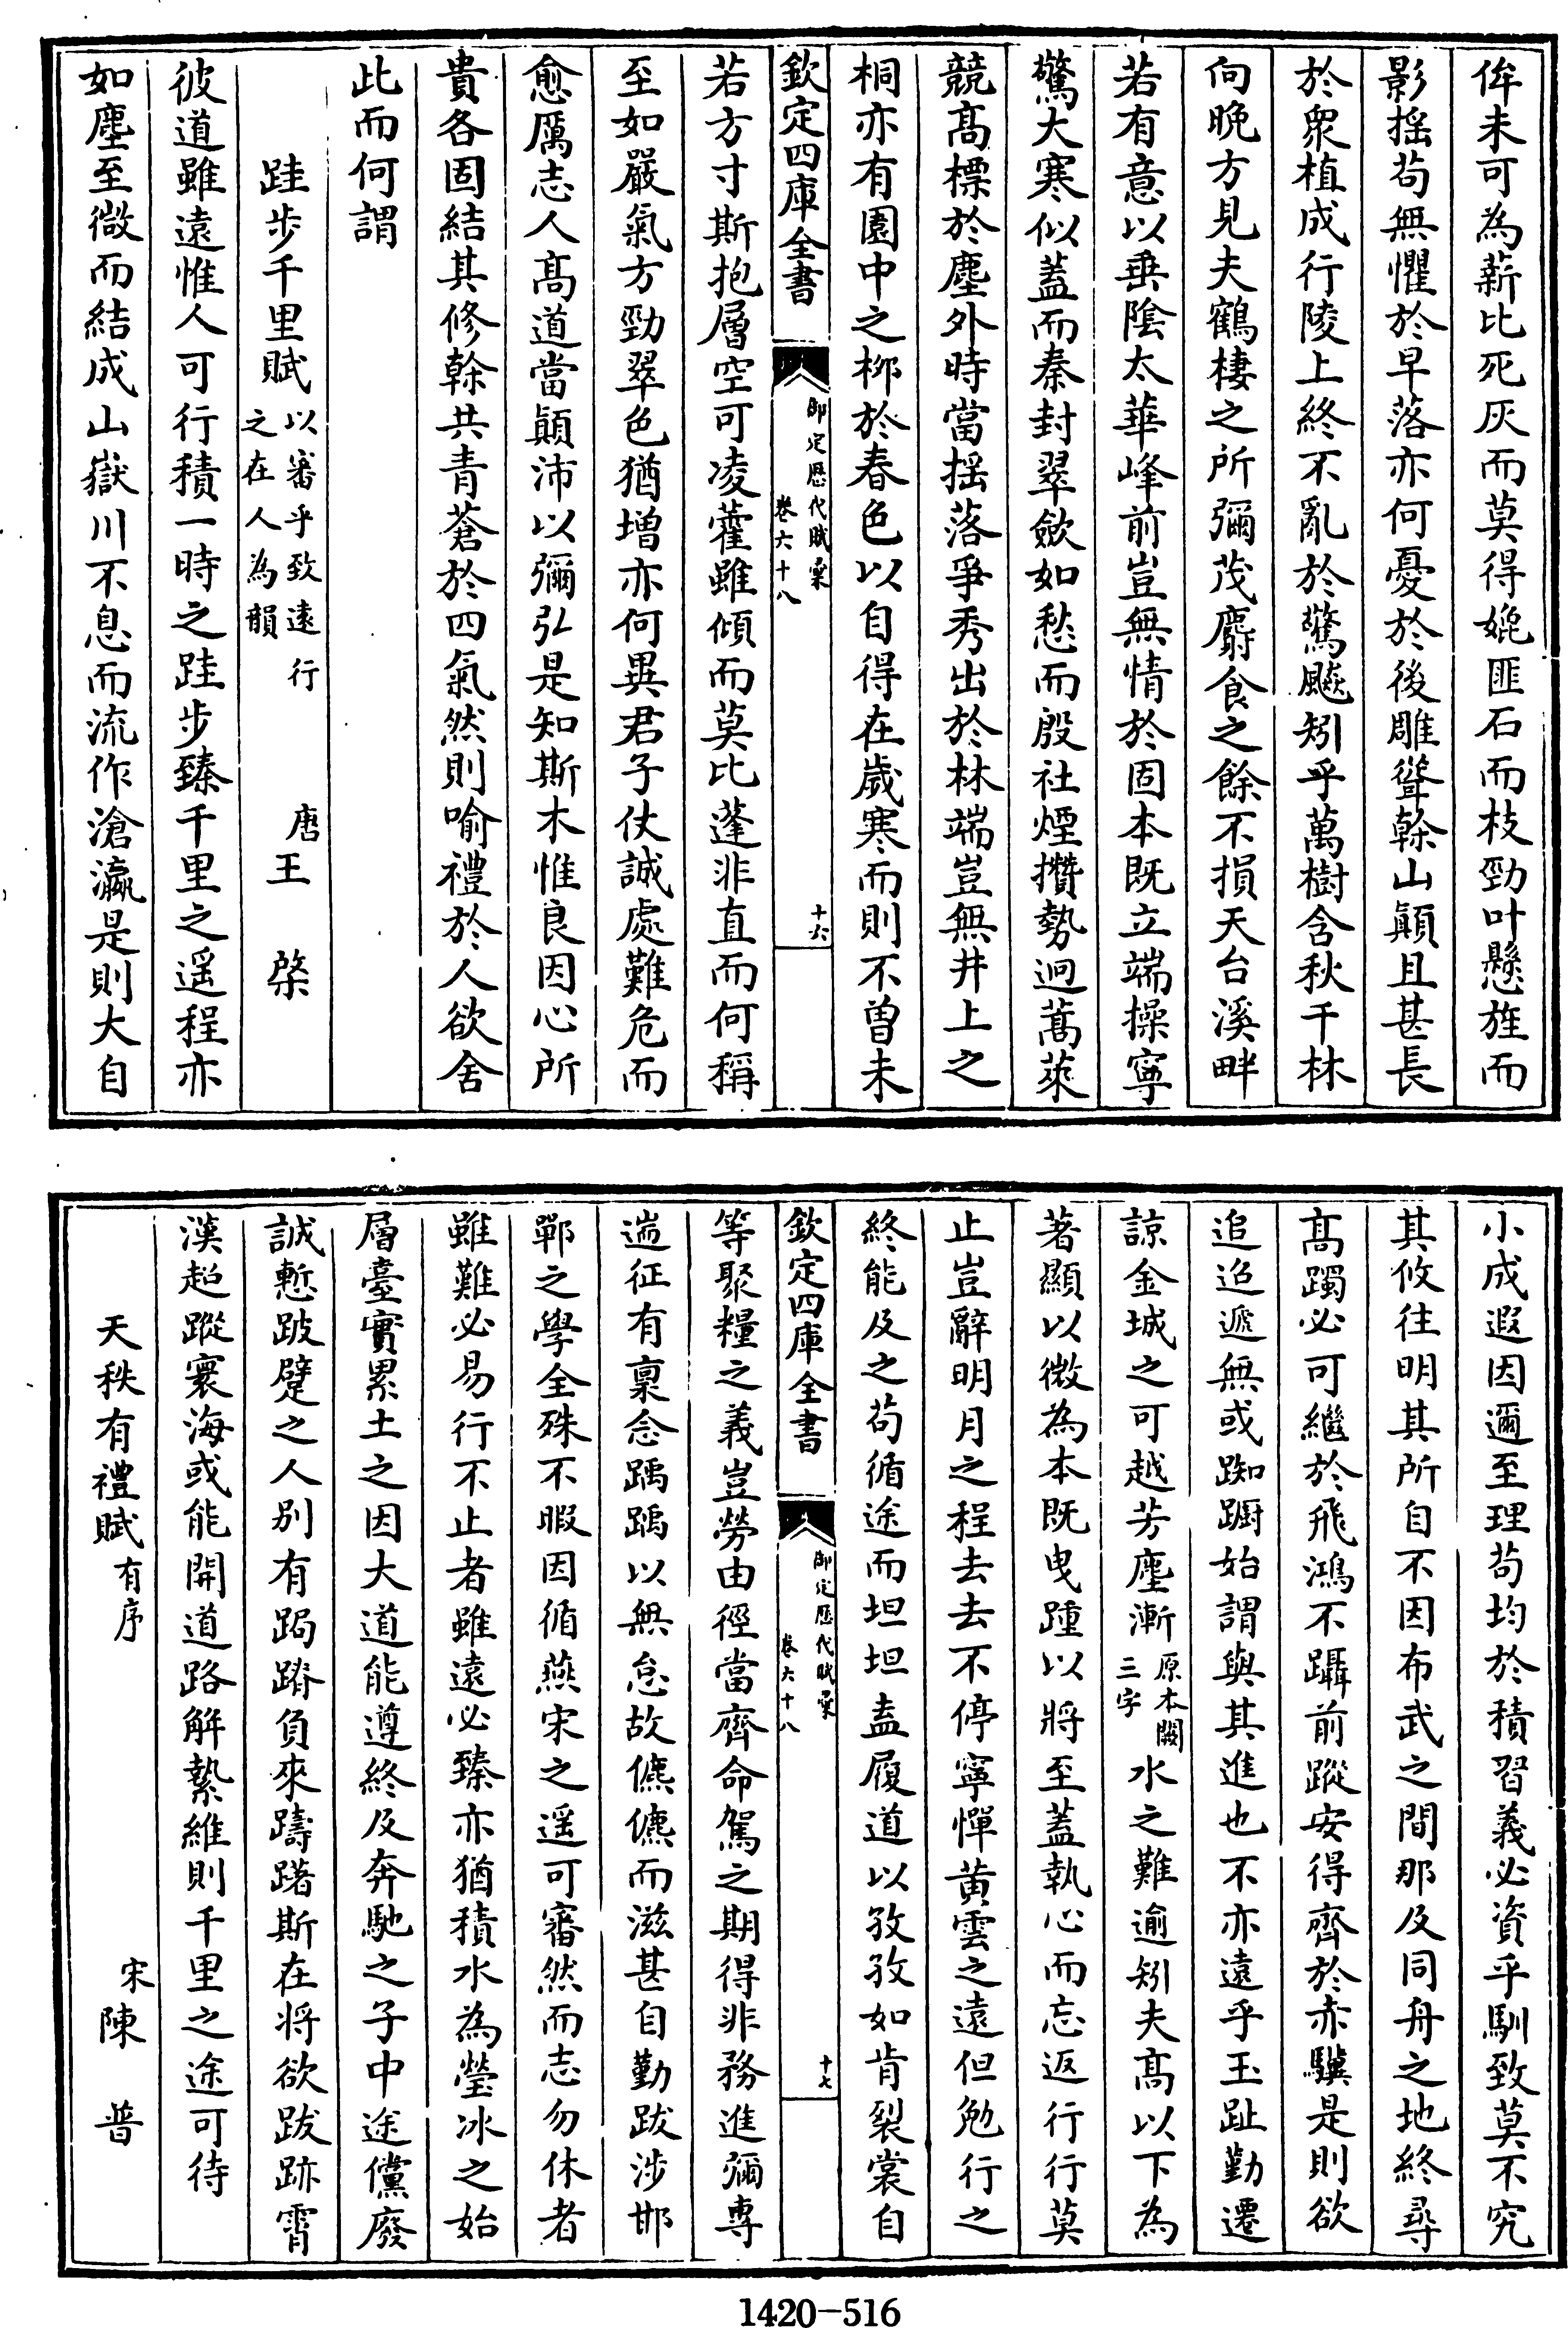 侔未可為薪比死灰而莫得媲匪石而枝勁叶懸旌而
影揺茍無懼於早落亦何憂於後雕聳榦山顛且甚長
於衆植成行陵上終不亂於驚飇矧乎萬樹含秋千林
向晚方見夫鶴棲之所彌茂麝食之餘不損天台溪畔
若有意以垂陰太華峰前豈無情於固本既立端操寧
驚大寒似蓋而秦封翠歛如愁而殷社煙攢勢迥蒿萊
競髙標於塵外時當揺落爭秀出於林端豈無井上之
桐亦有園中之桞於春色以自得在歲寒而則不曽未
欽定四庫全書
御定歴代賦彚
卷六十八
十六
若方寸斯抱層空可凌藿雖傾而莫比蓬非直而何稱
至如嚴氣方勁翠色猶增亦何異君子仗誠處難危而
愈厲志人髙道當顛沛以彌弘是知斯木惟良因心所
貴各固結其修榦共青蒼於四氣然則喻禮於人欲舍
此而何謂
跬步千里賦以審乎致逺行之在人為韻 唐王棨
彼道雖遠惟人可行積一時之跬步臻千里之遥程亦
如塵至微而結成山嶽川不息而流作滄瀛是則大自
小成遐因邇至理茍均於積習義必資乎馴致莫不究
其攸往明其所自不因布武之間那及同舟之地終尋
髙躅必可繼於飛鴻不躡前蹤安得齊於赤驥是則欲
追迢遞無或踟蹰始謂與其進也不亦遠乎玉趾勤遷
諒金城之可越芳塵漸原本闕三字水之難逾矧夫髙以下為
著顯以微為本既曳踵以將至蓋執心而忘返行行莫
止豈辭明月之程去去不停寧憚黄雲之遠但勉行之
終能及之茍循途而坦坦盍履道以孜孜如肯裂裳自
欽定四庫全書
御定歴代賦彚
卷六十八
十七
等聚糧之義豈勞由徑當齊命駕之期得非務進彌專
遄征有稟念踽踽以無怠故儦儦而滋甚自勤跋涉邯
鄲之學全殊不暇因循燕宋之遥可審然而志勿休者
雖難必易行不止者雖遠必臻亦猶積水為瑩冰之始
層臺實累土之因大道能遵終及奔馳之子中途儻廢
誠慙跛躄之人别有跼蹐負來躊躇斯在将欲跋跡霄
漢起蹤寰海或能開道路解縶維則千里之途可待
天秩有禮賦有序 宋陳普
1420-516